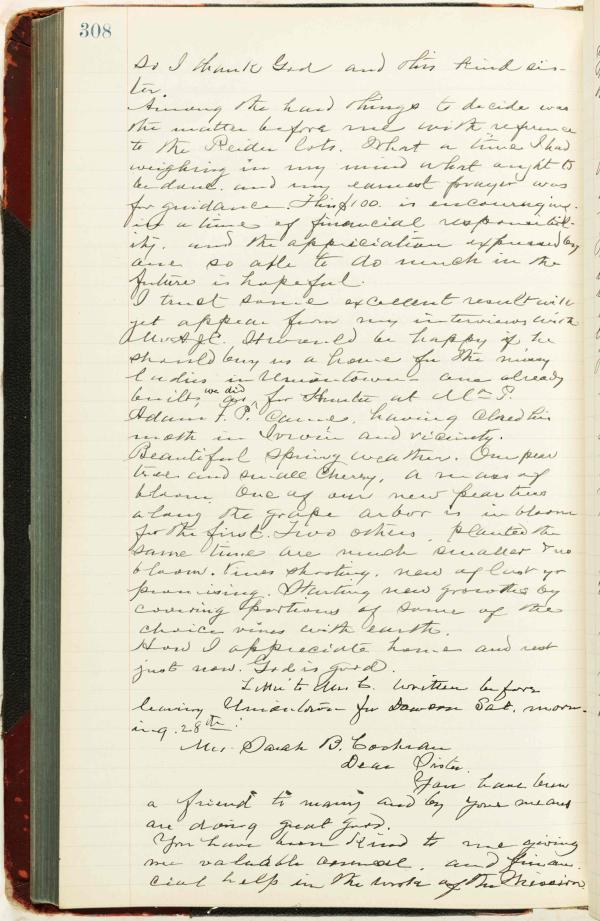 308
so I thank God and this kind sis-
ter.
Among the hard things to decide was
the matter before me with reference
to the Reider lots. What a time I had
weighing in my mind what ought to
be done. and my earnest prayer was
for guidance. This $100. is encouraging.
in a time of financial responsibil-
ity. and the appreciation expressed by
one so able to do much in the
future is hopeful.
I trust some excellent result will
yet appear from my interviews with
Mr A.J.C. It would be happy if he
should buy us a home for the missy
ladies in Uniontown - one already
built, we did for at Mtn P.
Adam F. P. came, having closed his
month in Irwin and vicinity.
Beautiful Spring weather. Our pear
tree and small Cherry, a mass of
bloom. One of our new pear trees
along the grape arbor is in bloom
for the first. Two others, planted the
same time are much smaller & no
bloom. Vines shooting. new of last yr
promising. Starting new growths by
covering portions of some of the
choice vines with earth.
How I appreciate home and rest
just now. God is good.
Letter to Mrs C. written before
leaving Uniontown for Dawson Sat. morn-
ing. 28th.
Mrs. Sarah B. Cochran
Dear Sister.
You have been
a friend to many and by your means
are doing great good.
You have been kind to me giving
me valuable counsel, and finan-
cial help in the work of the Mission